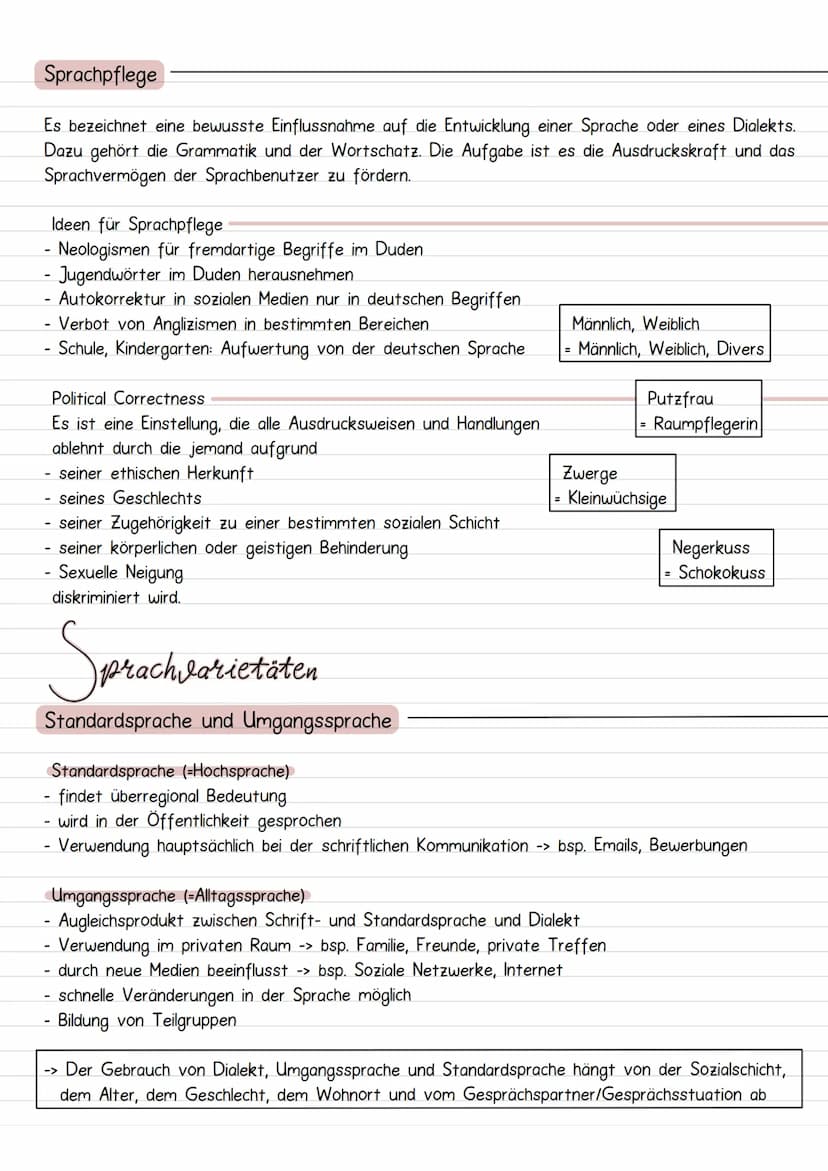 Sprachpflege
Es bezeichnet eine bewusste Einflussnahme auf die Entwicklung einer Sprache oder eines Dialekts.
Dazu gehört die Grammatik und der Wortschatz. Die Aufgabe ist es die Ausdruckskraft und das
Sprachvermögen der Sprachbenutzer zu fördern.
Ideen für Sprachpflege
- Neologismen für fremdartige Begriffe im Duden
- Jugendwörter im Duden herausnehmen
- Autokorrektur in sozialen Medien nur in deutschen Begriffen
- Verbot von Anglizismen in bestimmten Bereichen
- Schule, Kindergarten: Aufwertung von der deutschen Sprache
Männlich, Weiblich
= Männlich, Weiblich, Divers
Political Correctness
Es ist eine Einstellung, die alle Ausdrucksweisen und Handlungen
ablehnt durch die jemand aufgrund
- seiner ethischen Herkunft
- seines Geschlechts
- seiner Zugehörigkeit zu einer bestimmten sozialen Schicht
- seiner körperlichen oder geistigen Behinderung
- Sexuelle Neigung
diskriminiert wird.
Putzfrau
= Raumpflegerin
Zwerge
= Kleinwüchsige
Negerkuss
= Schokokuss
Sprachvarietäten
Standardsprache und Umgangssprache
Standardsprache (=Hochsprache)
- findet überregional Bedeutung
- wird in der Öffentlichkeit gesprochen
- Verwendung hauptsächlich bei der schriftlichen Kommunikation -> bsp. Emails, Bewerbungen
Umgangssprache (=Alltagssprache)
- Augleichsprodukt zwischen Schrift- und Standardsprache und Dialekt
- Verwendung im privaten Raum -> bsp. Familie, Freunde, private Treffen
- durch neue Medien beeinflusst -> bsp. Soziale Netzwerke, Internet
- schnelle Veränderungen in der Sprache möglich
- Bildung von Teilgruppen
-> Der Gebrauch von Dialekt, Umgangssprache und Standardsprache hängt von der Sozialschicht,
dem Alter, dem Geschlecht, dem Wohnort und vom Gesprächspartner/Gesprächsstuation ab